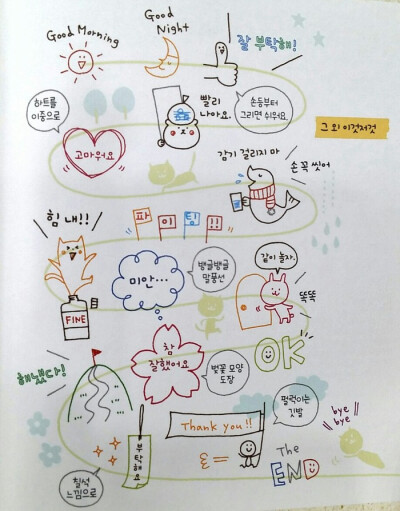 Good Morning
Good
Night
잘 부탁해!
하트를
이중으로
고마워요
빨리
나아요.
손등부터
그리면 쉬워요.
그 외 이것저것
감기 걸리지 마
손 꼭 씻어
힘 내!!
파이팅!!
미안…
뱅글뱅글
말풍선
같이 놀자.
똑똑
FINE
참
잘했어요
벚꽃 모양
도장
OK
해냈다!
펄럭이는
깃발
Thank you!!
bye
bye
칠석
느낌으로
부탁해요
The
END